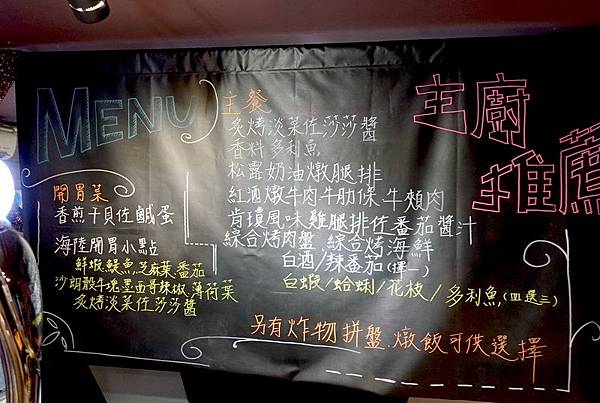 MENU
開胃菜
香煎干貝佐鹹蛋
海陸開胃小點
鮮蝦,鯷魚,芝麻葉,番茄
沙朗骰牛,墨西哥辣椒,薄荷葉
炙烤淡菜佐莎莎醬
主餐
炙烤淡菜佐莎莎醬
香料多利魚
松露奶油燉腿排
紅酒燉牛肉牛肋條 牛頰肉
肯瓊風味雞腿排佐番茄醬汁
綜合烤肉盤 綜合烤海鮮
白酒/辣番茄(擇一)
白蝦/蛤蜊/花枝/多利魚,(四選三)
主廚
推薦
另有炸物拼盤.燉飯可供選擇